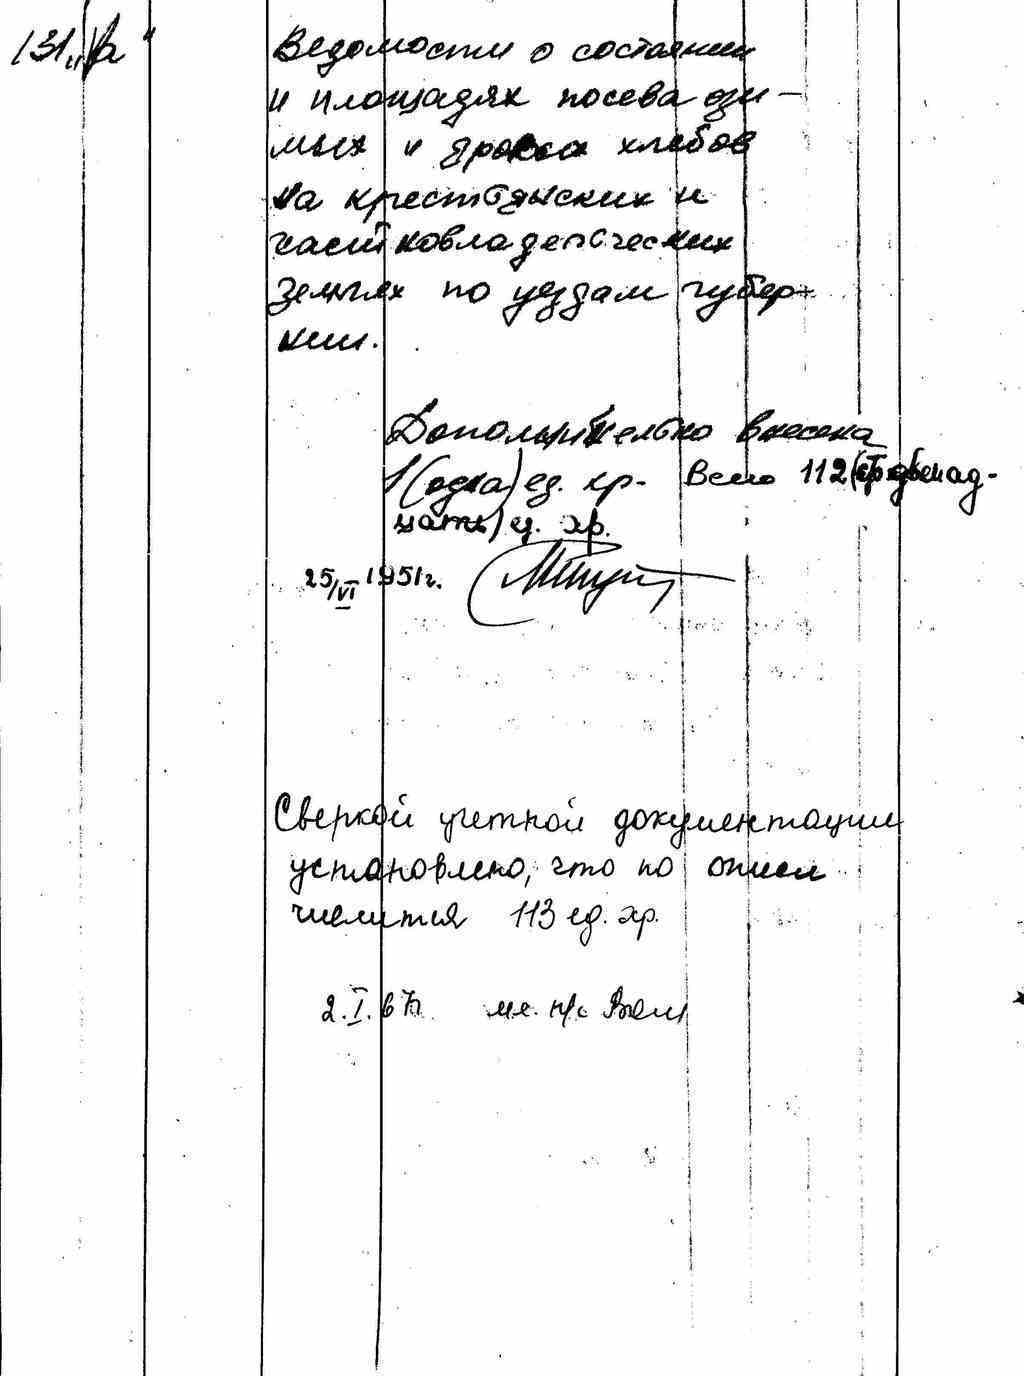 131 „а"
Ведомости о состоянии
и площадях посева ози-
мых и яровых хлебов
на крестьянских и
частновладельческих
землях по уездам губер-
нии.
Дополнительно внесена
1 (одна) ед. хр. Всего 112 (сто двенад-
цать) ед. хр.
25/VI 1951г.
Сверкой учетной документации
установлено, что по описи
числится 113 ед. хр.
2.I.67г. мл. н/с